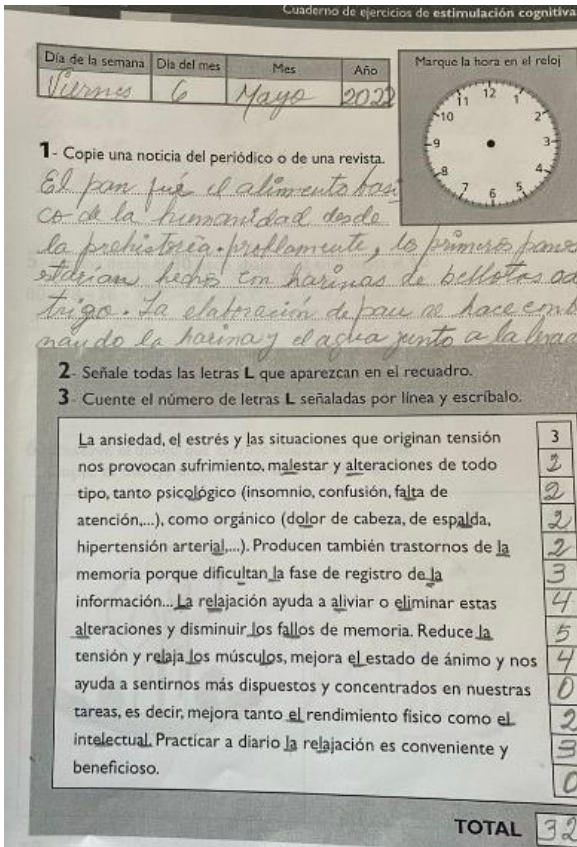 Cuaderno de ejercicios de estimulación cognitiva
Día de la semana Día del mes Mes Año
Viernes 6 Mayo 2022
Marque la hora en el reloj
12
11 1
10 2
9 3
8 4
7 6 5
1- Copie una noticia del periódico o de una revista.
El pan fué el alimento basi
co de la humanidad desde
la prehistoria. probllamente, los primeros panes
estarian hechos con harinas de bellotas
trigo. La elaboración de pan se hace comb
nando la harina y el agua junto a la
2- Señale todas las letras L que aparezcan en el recuadro.
3- Cuente el número de letras L señaladas por línea y escríbalo.
La ansiedad, el estrés y las situaciones que originan tensión 3
nos provocan sufrimiento, malestar y alteraciones de todo 2
tipo, tanto psicológico (insomnio, confusión, falta de 2
atención,...), como orgánico (dolor de cabeza, de espalda, 2
hipertensión arterial,...). Producen también trastornos de la 2
memoria porque dificultan la fase de registro de la 3
información... La relajación ayuda a aliviar o eliminar estas 4
alteraciones y disminuir los fallos de memoria. Reduce la 5
tensión y relaja los músculos, mejora el estado de ánimo y nos 4
ayuda a sentirnos más dispuestos y concentrados en nuestras 0
tareas, es decir, mejora tanto el rendimiento físico como el 2
intelectual. Practicar a diario la relajación es conveniente y 3
beneficioso. 0
TOTAL 32